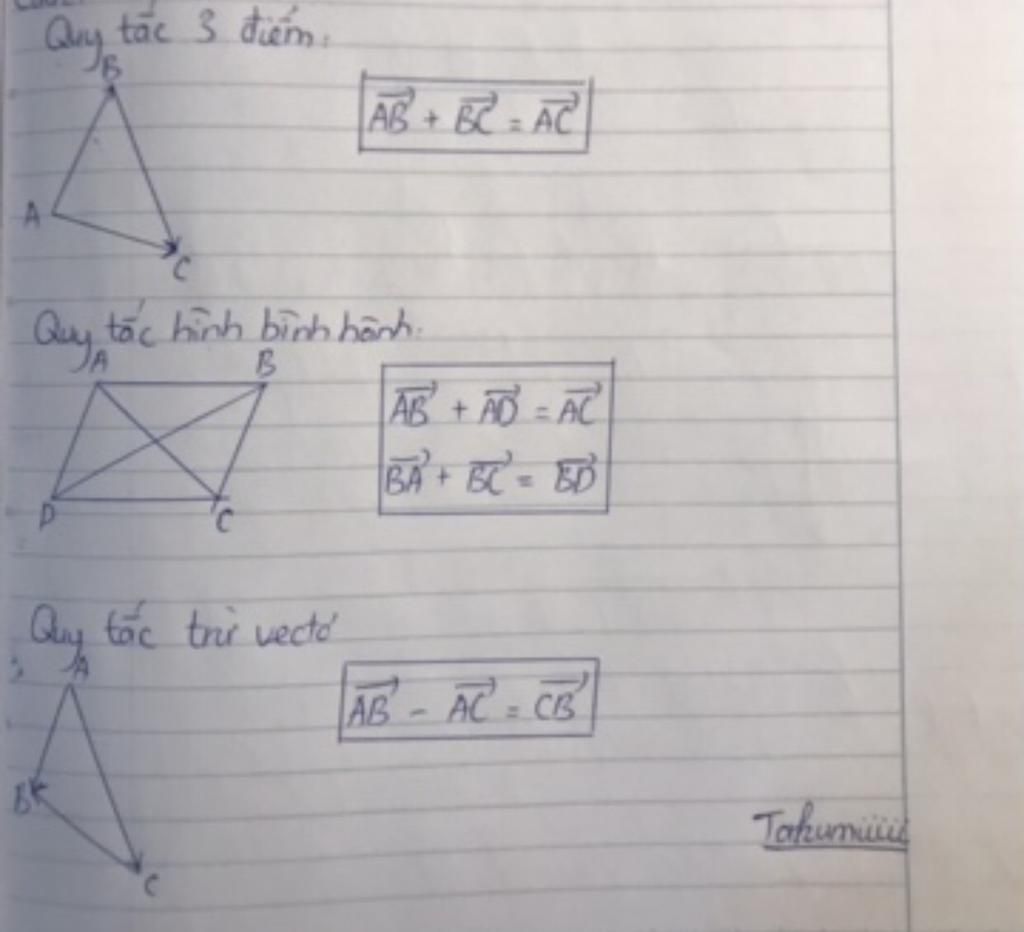 Quy tắc 3 điểm:
B
AB⃗ + BC⃗ = AC⃗
A
C
Quy tắc hình bình hành:
A B
AB⃗ + AD⃗ = AC⃗
BA⃗ + BC⃗ = BD⃗
D C
Quy tắc trừ vectơ
A
AB⃗ - AC⃗ = CB⃗
B
C
Takumiiiii